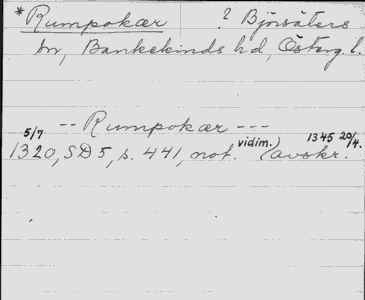 *Rumpokær ? Björsäters
sn, Bankekinds hd, Österg. l.
-- Rumpokær ---
5/7 vidim.) 1345 20/4.
1320, SD 5, s. 441, not. (avskr.